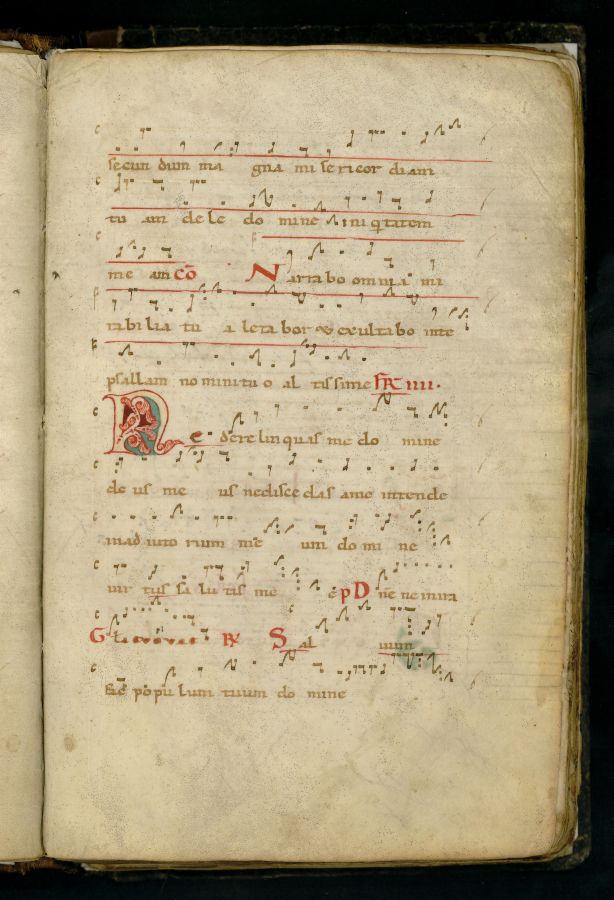 secun dum ma gna mi se ri cor diam
tu am de le do mine i ni qtatem
me am cō N arrabo omnia mi
rabilia tu a letabor & exultabo inte
psallam nominituo al tissime FR IIII.
Ne derelinquas me do mine
de us me us nediscedas ame intende
inad iuto rium mē um domi ne
uir tus sa lu tis me ē p D ne ne inira
Gł a R Sal uum
fac popu lum tuum do mine